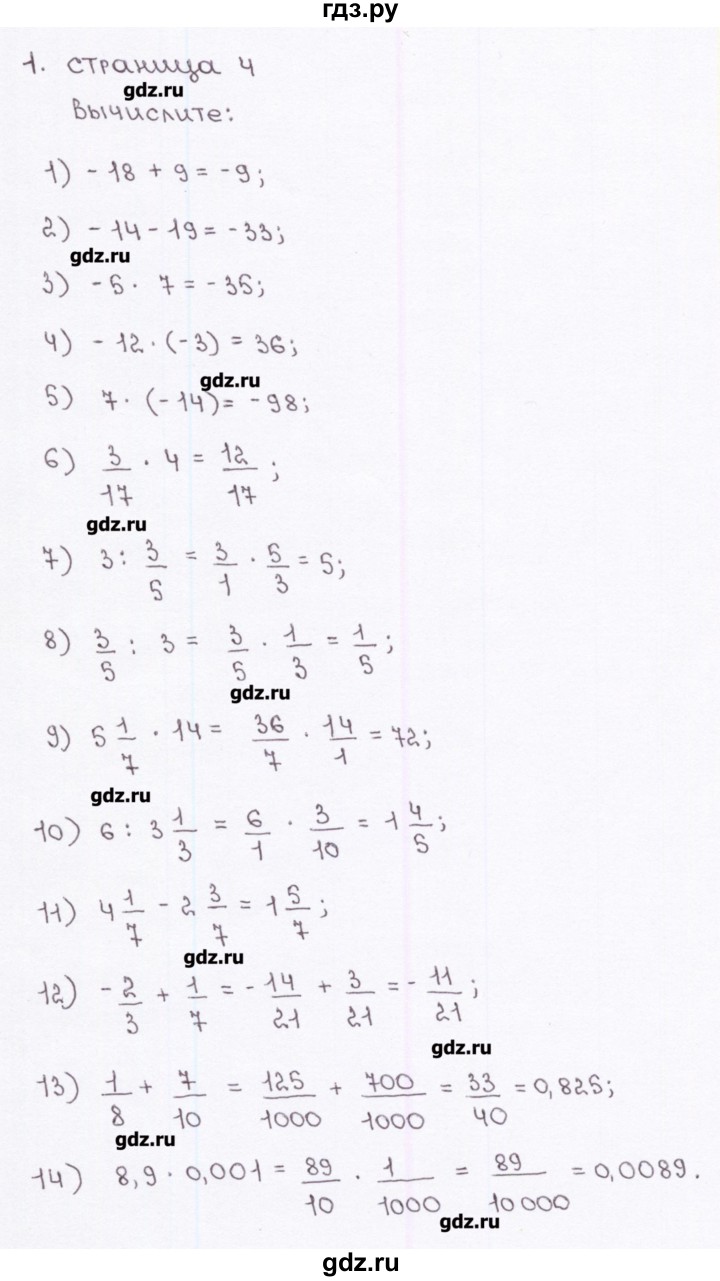 гдз.ру
1. страница 4
gdz.ru
Вычислите:
1) - 18 + 9 = -9;
2) - 14 - 19 = -33;
gdz.ru
3) -5 · 7 = -35;
4) - 12 · (-3) = 36;
gdz.ru
5) 7 · (-14) = -98;
6) 3/17 · 4 = 12/17;
gdz.ru
7) 3 : 3/5 = 3/1 · 5/3 = 5;
8) 3/5 : 3 = 3/5 · 1/3 = 1/5;
gdz.ru
9) 5 1/7 · 14 = 36/7 · 14/1 = 72;
gdz.ru
10) 6 : 3 1/3 = 6/1 · 3/10 = 1 4/5;
11) 4 1/7 - 2 3/7 = 1 5/7;
gdz.ru
12) - 2/3 + 1/7 = - 14/21 + 3/21 = - 11/21;
gdz.ru
13) 1/8 + 7/10 = 125/1000 + 700/1000 = 33/40 = 0,825;
gdz.ru
14) 8,9 · 0,001 = 89/10 · 1/1000 = 89/10 000 = 0,0089.
gdz.ru
gdz.ru